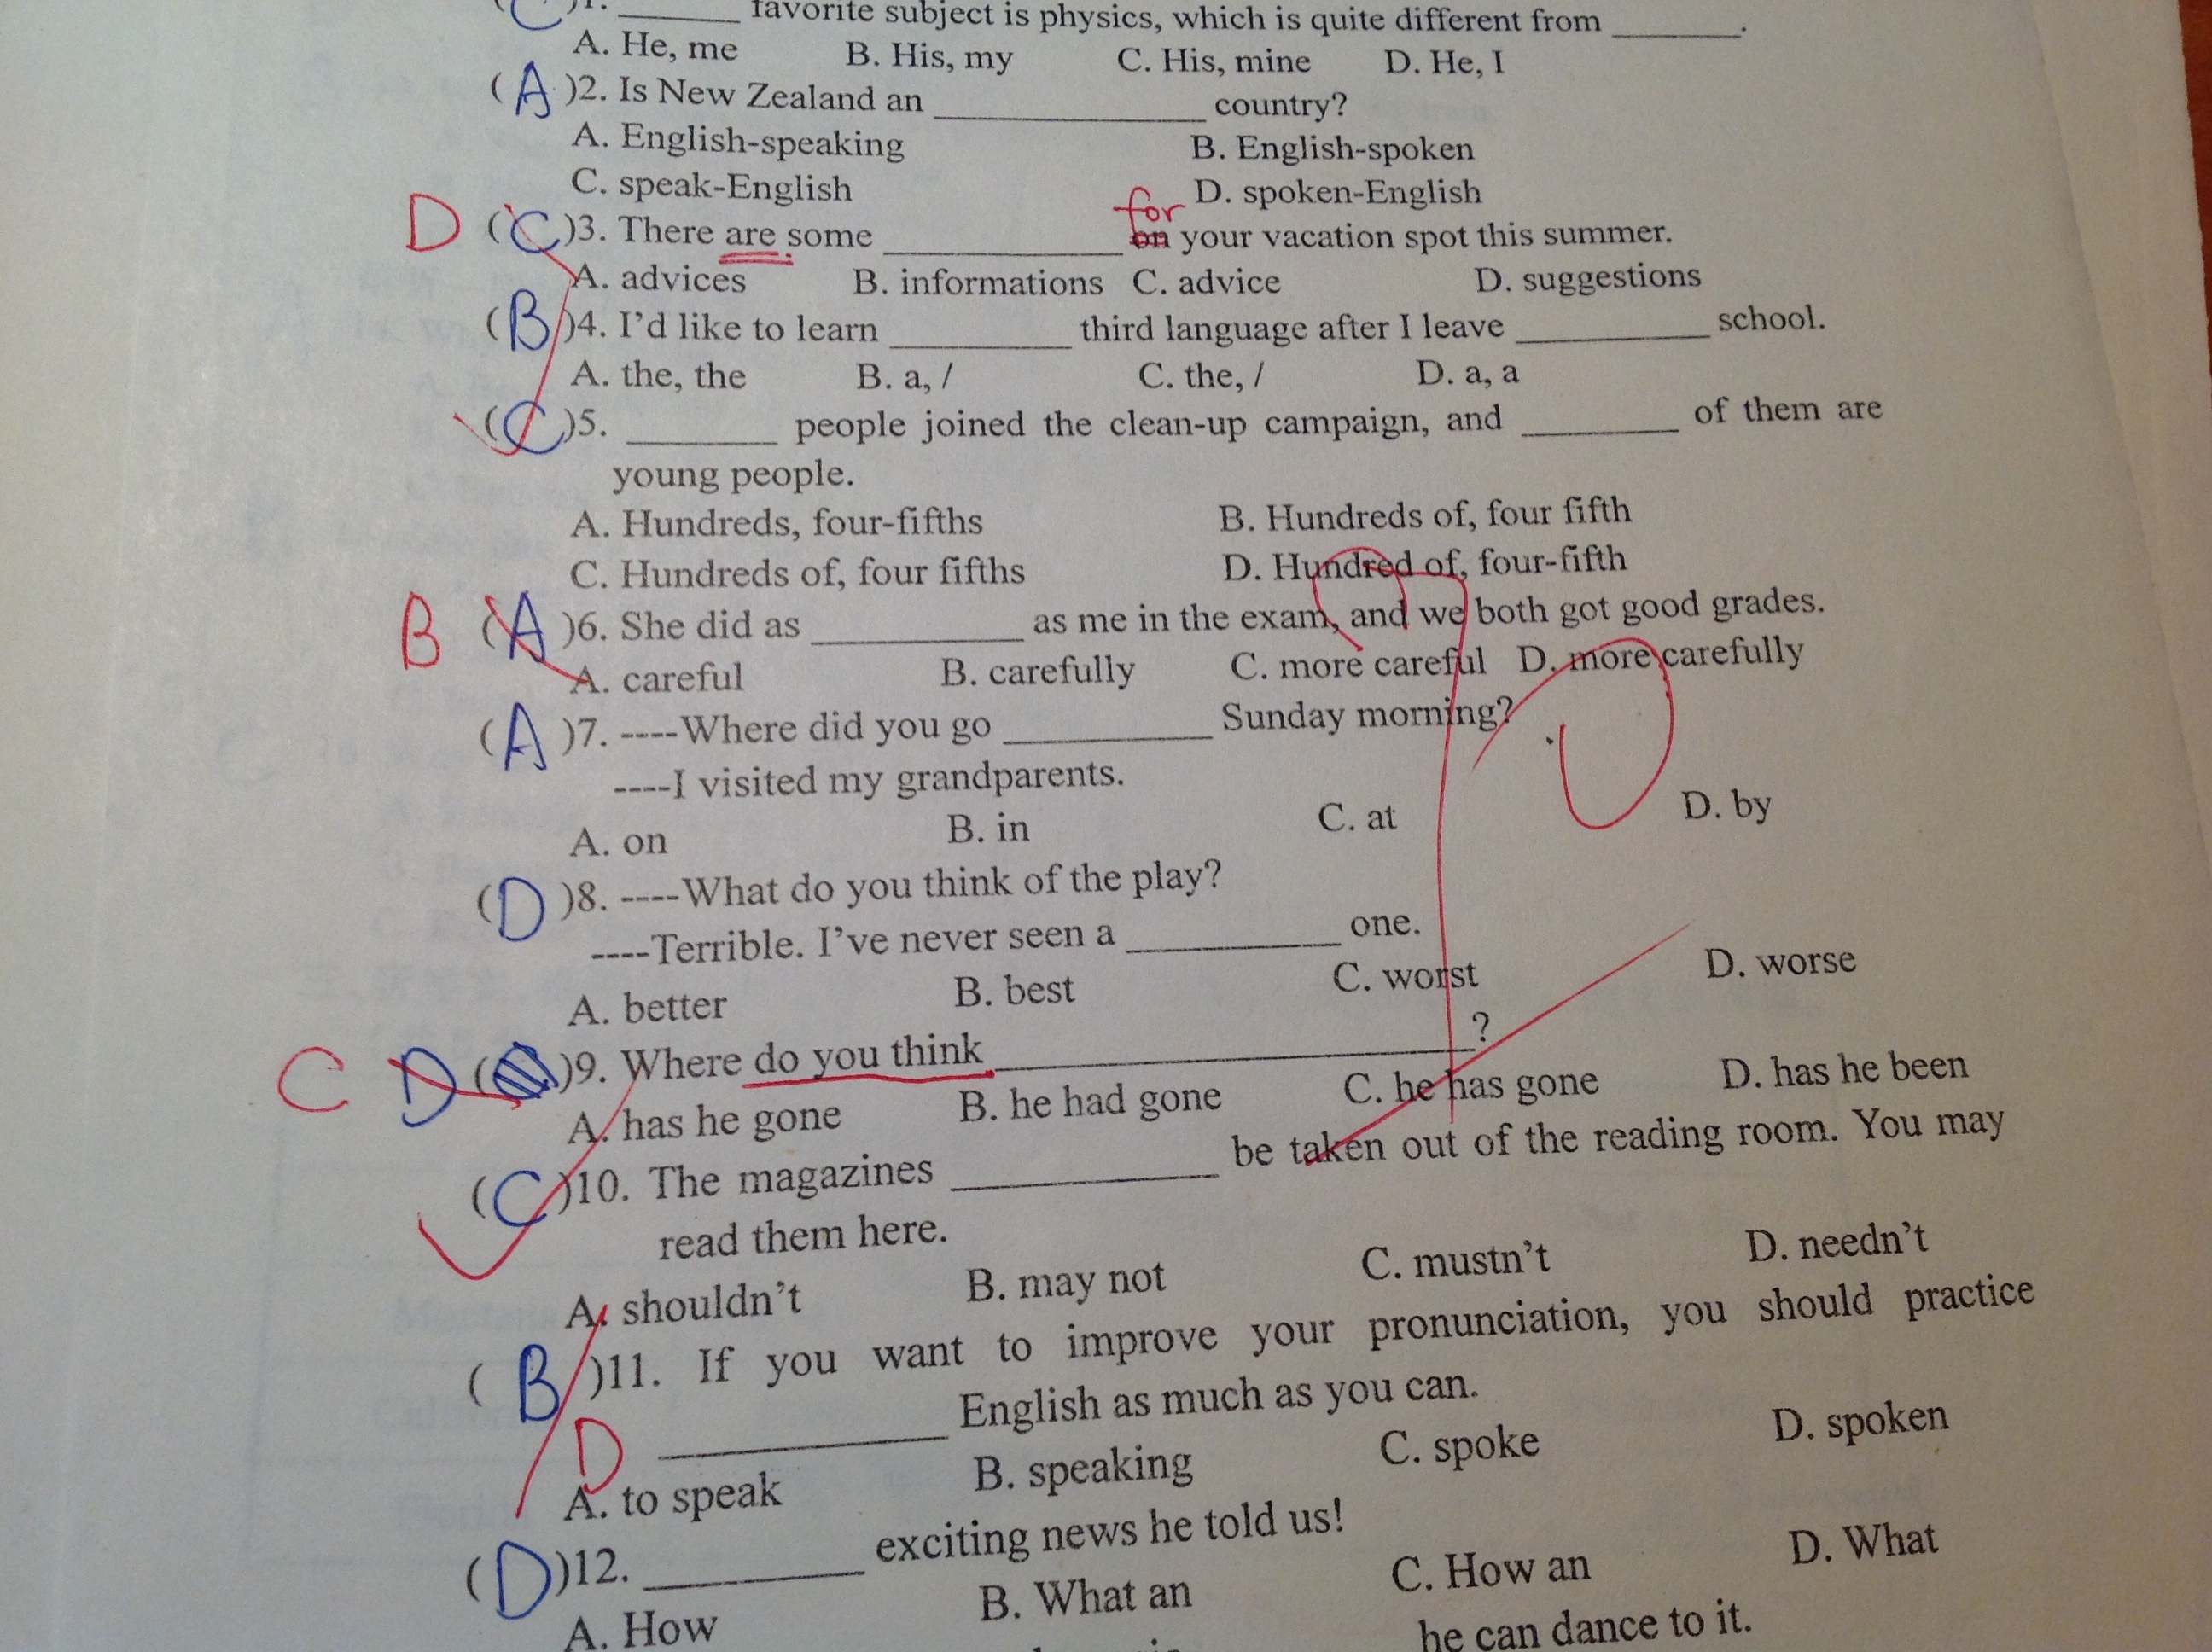 (C)1. ______ favorite subject is physics, which is quite different from ______.
A. He, me B. His, my C. His, mine D. He, I
(A)2. Is New Zealand an ____________ country?
A. English-speaking B. English-spoken
C. speak-English D. spoken-English
for
D (C)3. There are some ____________ on your vacation spot this summer.
A. advices B. informations C. advice D. suggestions
(B)4. I'd like to learn _________ third language after I leave _________ school.
A. the, the B. a, / C. the, / D. a, a
(C)5. _______ people joined the clean-up campaign, and _______ of them are
young people.
A. Hundreds, four-fifths B. Hundreds of, four fifth
C. Hundreds of, four fifths D. Hundred of, four-fifth
B (A)6. She did as __________ as me in the exam, and we both got good grades.
A. careful B. carefully C. more careful D. more carefully
(A)7. ----Where did you go __________ Sunday morning?
----I visited my grandparents.
A. on B. in C. at D. by
(D)8. ----What do you think of the play?
----Terrible. I've never seen a __________ one.
A. better B. best C. worst D. worse
C D ( )9. Where do you think ______________________?
A. has he gone B. he had gone C. he has gone D. has he been
(C)10. The magazines ____________ be taken out of the reading room. You may
read them here.
A. shouldn't B. may not C. mustn't D. needn't
(B)11. If you want to improve your pronunciation, you should practice
D ____________ English as much as you can.
A. to speak B. speaking C. spoke D. spoken
(D)12. _________ exciting news he told us!
A. How B. What an C. How an D. What
he can dance to it.